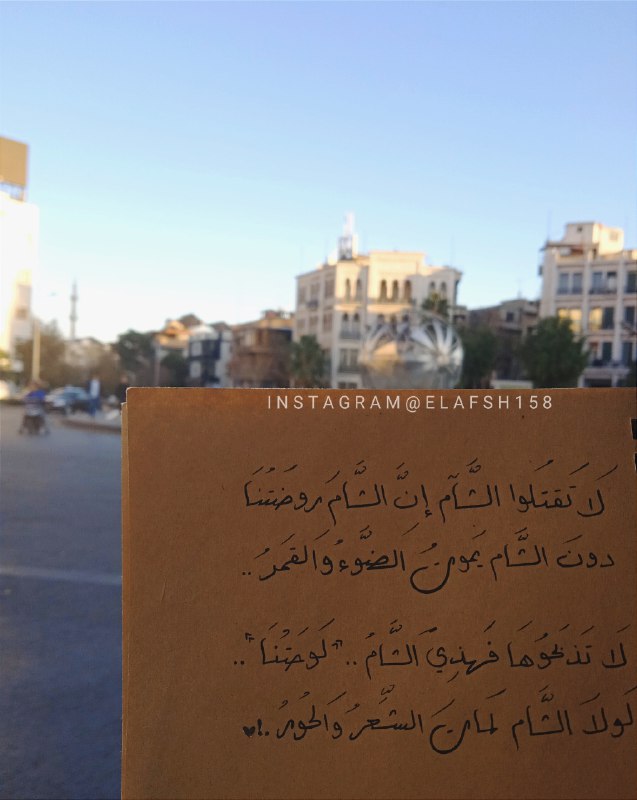 INSTAGRAM@ELAFSH158
لَا تَقتُلوا الشَّآم إنَّ الشَّامَ روضَتُنَا
دونَ الشَّام يَموتُ الضَّوءُ وَالقَمَرُ ..
لَا تَذبَحُوهَا فَهذِي الشَّامُ .. "لَوحَتُنَا" ..
لَولَا الشَّام لَمَاتَ الشِّعرُ وَالحَورُ ..!♥